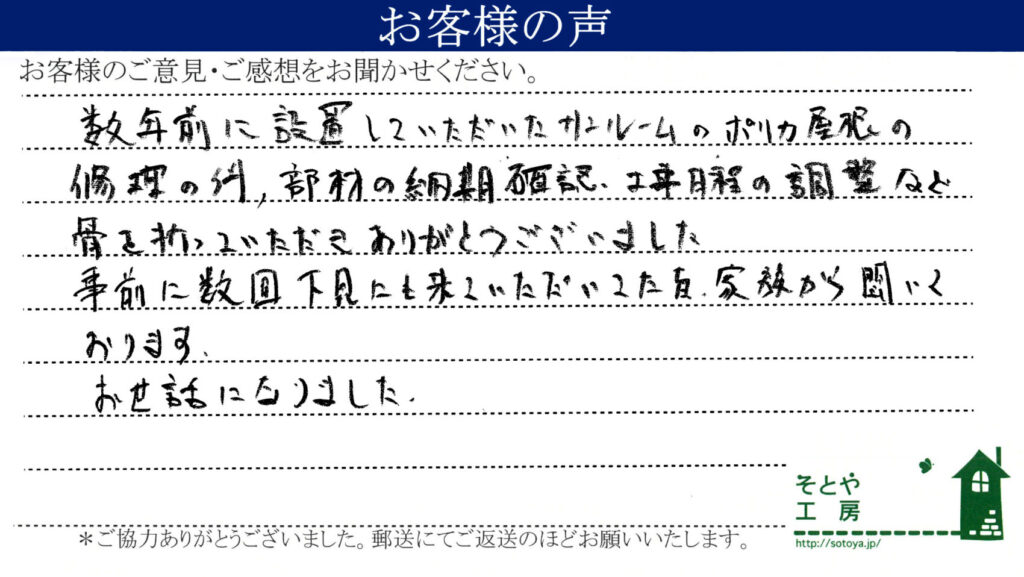 お客様の声
お客様のご意見・ご感想をお聞かせください。
数年前に設置していただいたサンルームのポリカ屋根の
修理の件,部材の納期確認、工事日程の調整など
骨を折っていただきありがとうございました
事前に数回下見にも来ていただいてた旨、家族から聞いて
おります.
お世話になりました.
そとや
工房
http://sotoya.jp/
＊ご協力ありがとうございました。郵送にてご返送のほどお願いいたします。